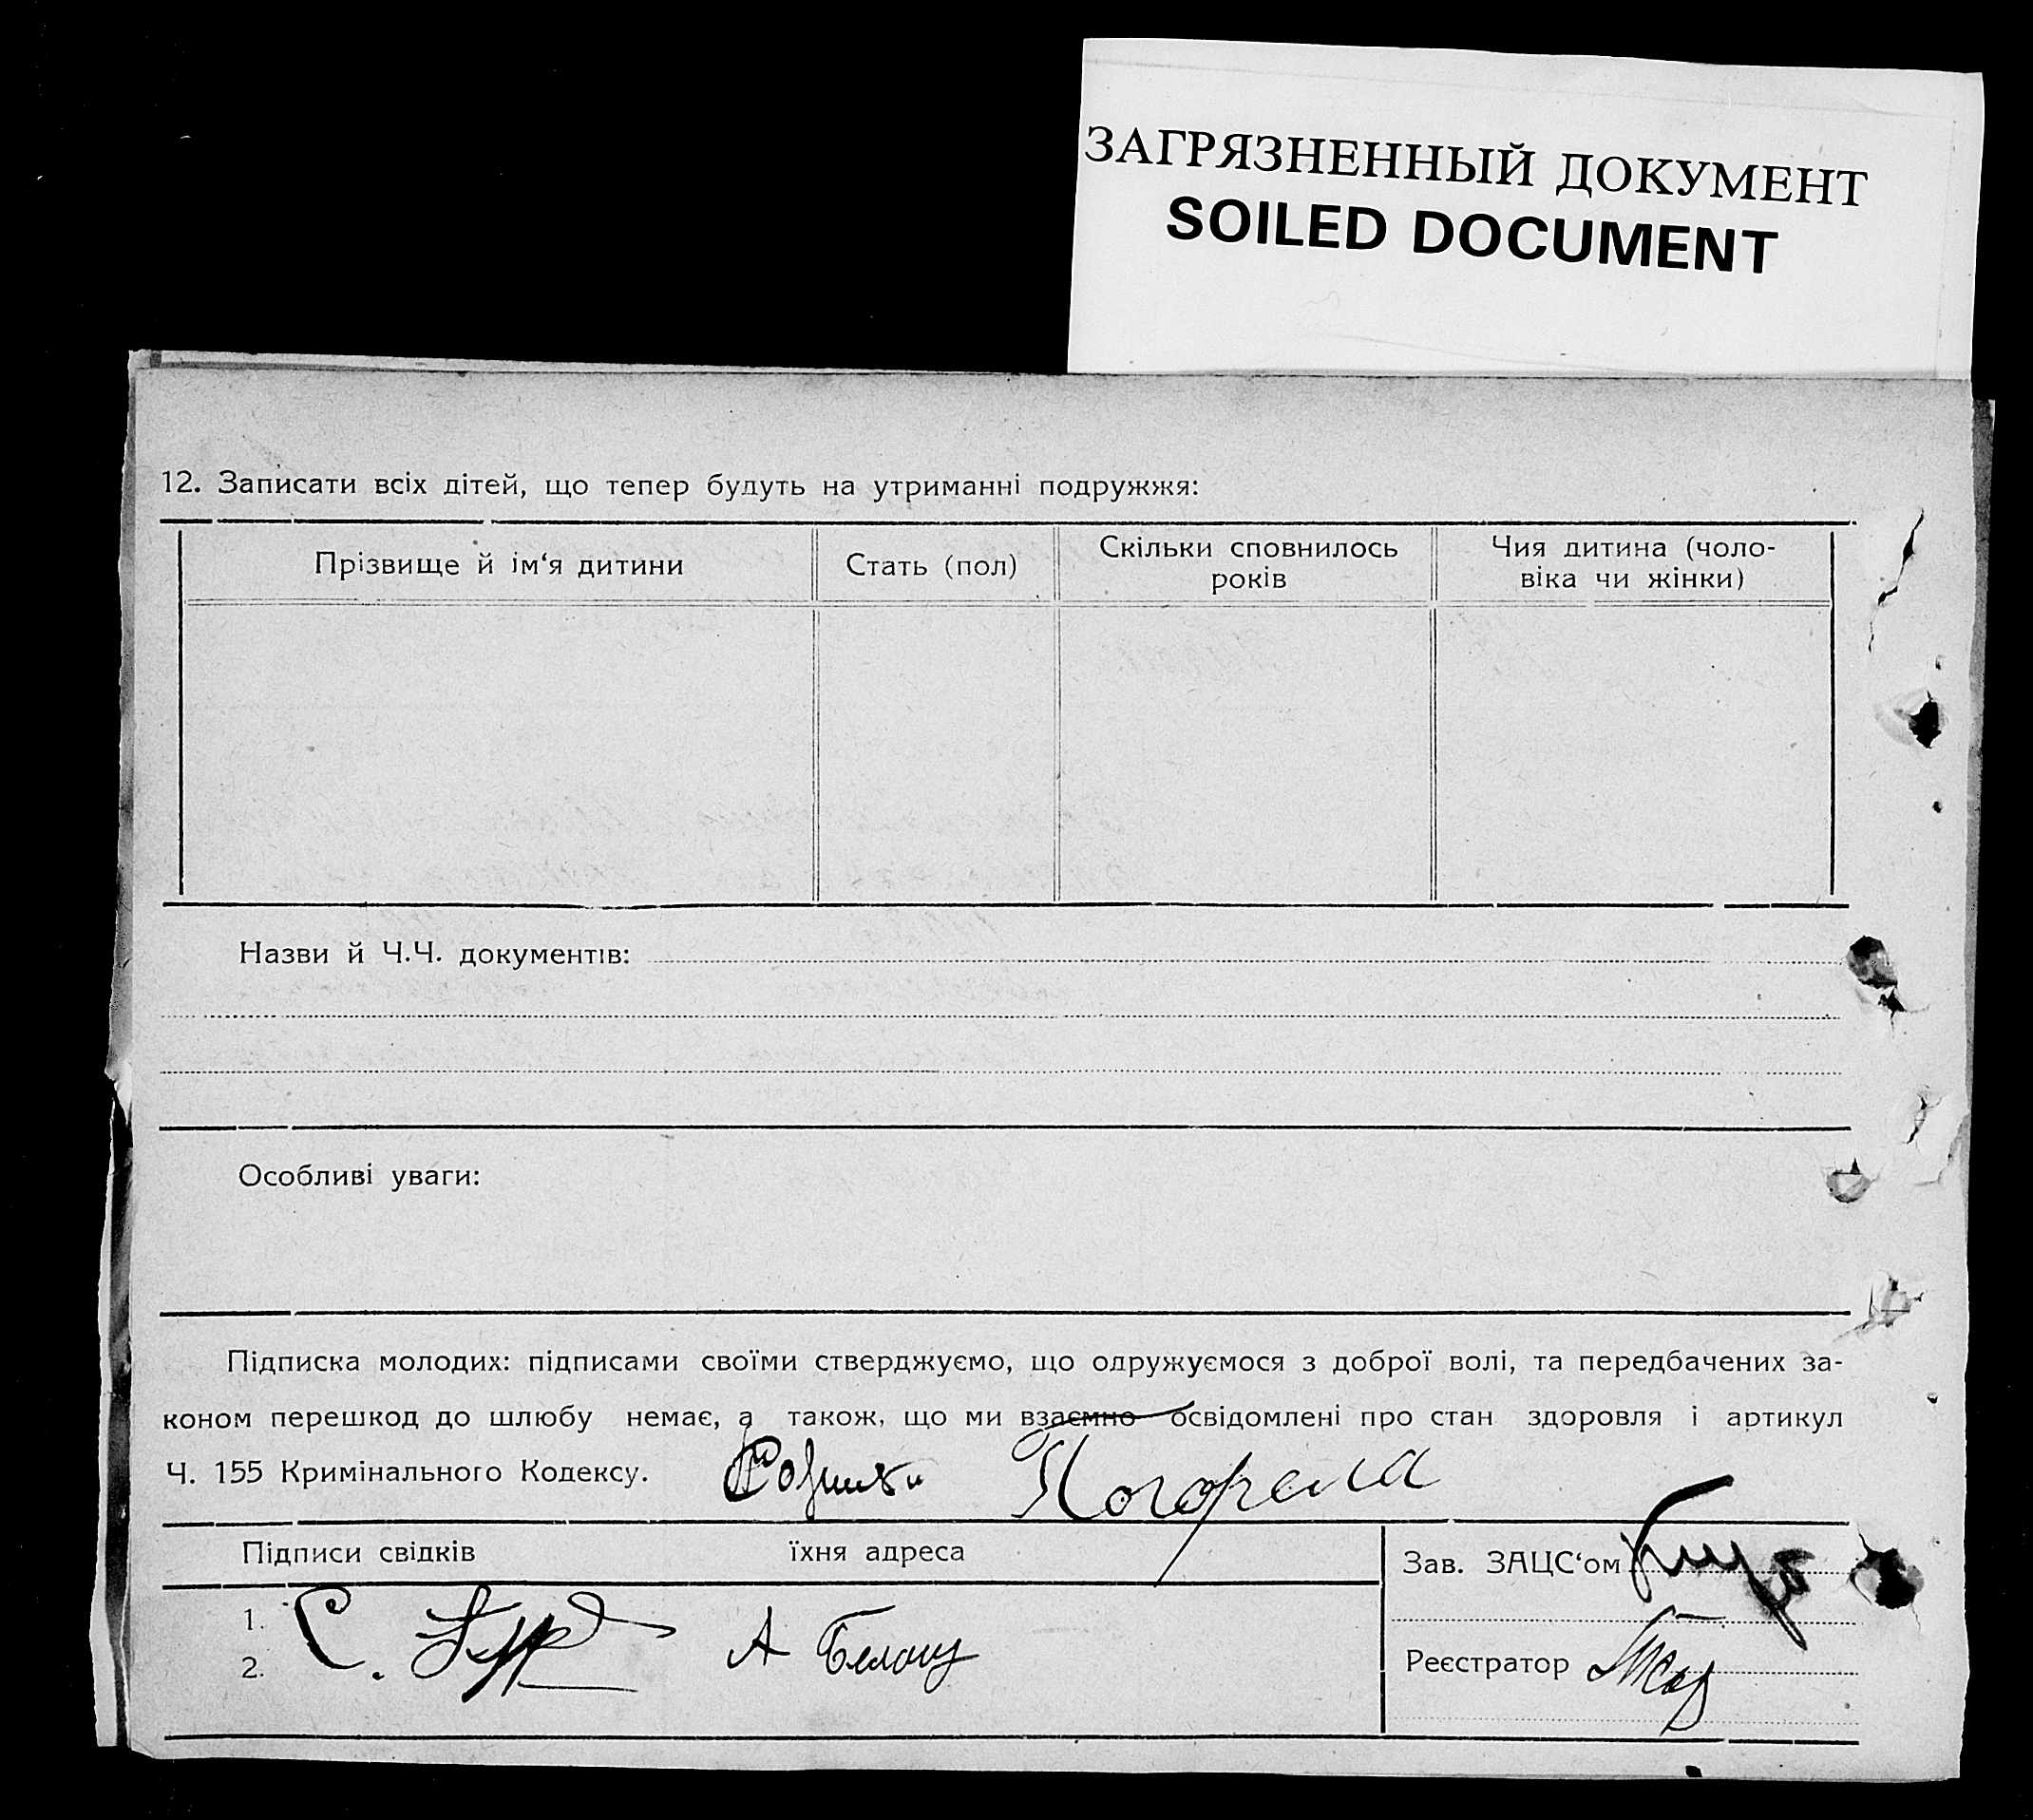 ЗАГРЯЗНЕННЫЙ ДОКУМЕНТ
SOILED DOCUMENT
12. Записати всіх дітей, що тепер будуть на утриманні подружжя:
Прізвище й ім‘я дитини
Стать (пол)
Скільки сповнилось
років
Чия дитина (чоло-
віка чи жінки)
Назви й Ч.Ч. документів:
Особливі уваги:
Підписка молодих: підписами своїми стверджуємо, що одружуємося з доброї волі, та передбачених за-
коном перешкод до шлюбу немає, а також, що ми взаємно освідомлені про стан здоровля і артикул
Ч. 155 Кримінального Кодексу. Погорела
Підписи свідків їхня адреса
Зав. ЗАЦС‘ом
1. С.
А
2.
Реєстратор